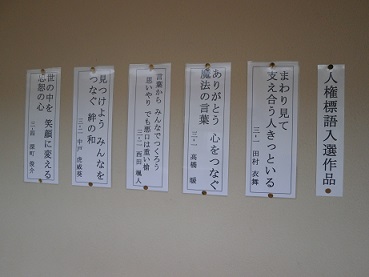 人権標語入選作品
まわり見て
支え合う人きっといる
三・一 田村 衣舞
ありがとう 心をつなぐ
魔法の言葉
三・一 高橋 暖
言葉から みんなでつくろう
思いやり でも悪口は重い槍
三・一 西田 颯人
見つけよう みんなを
つなぐ 絆の和
三・二 中戸 虎威発
世の中を 笑顔に変える
心形の心
三・四 深町 俊介